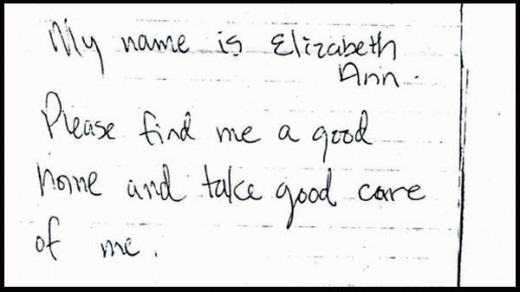 My name is Elizabeth
Ann.
Please find me a good
home and take good care
of me.